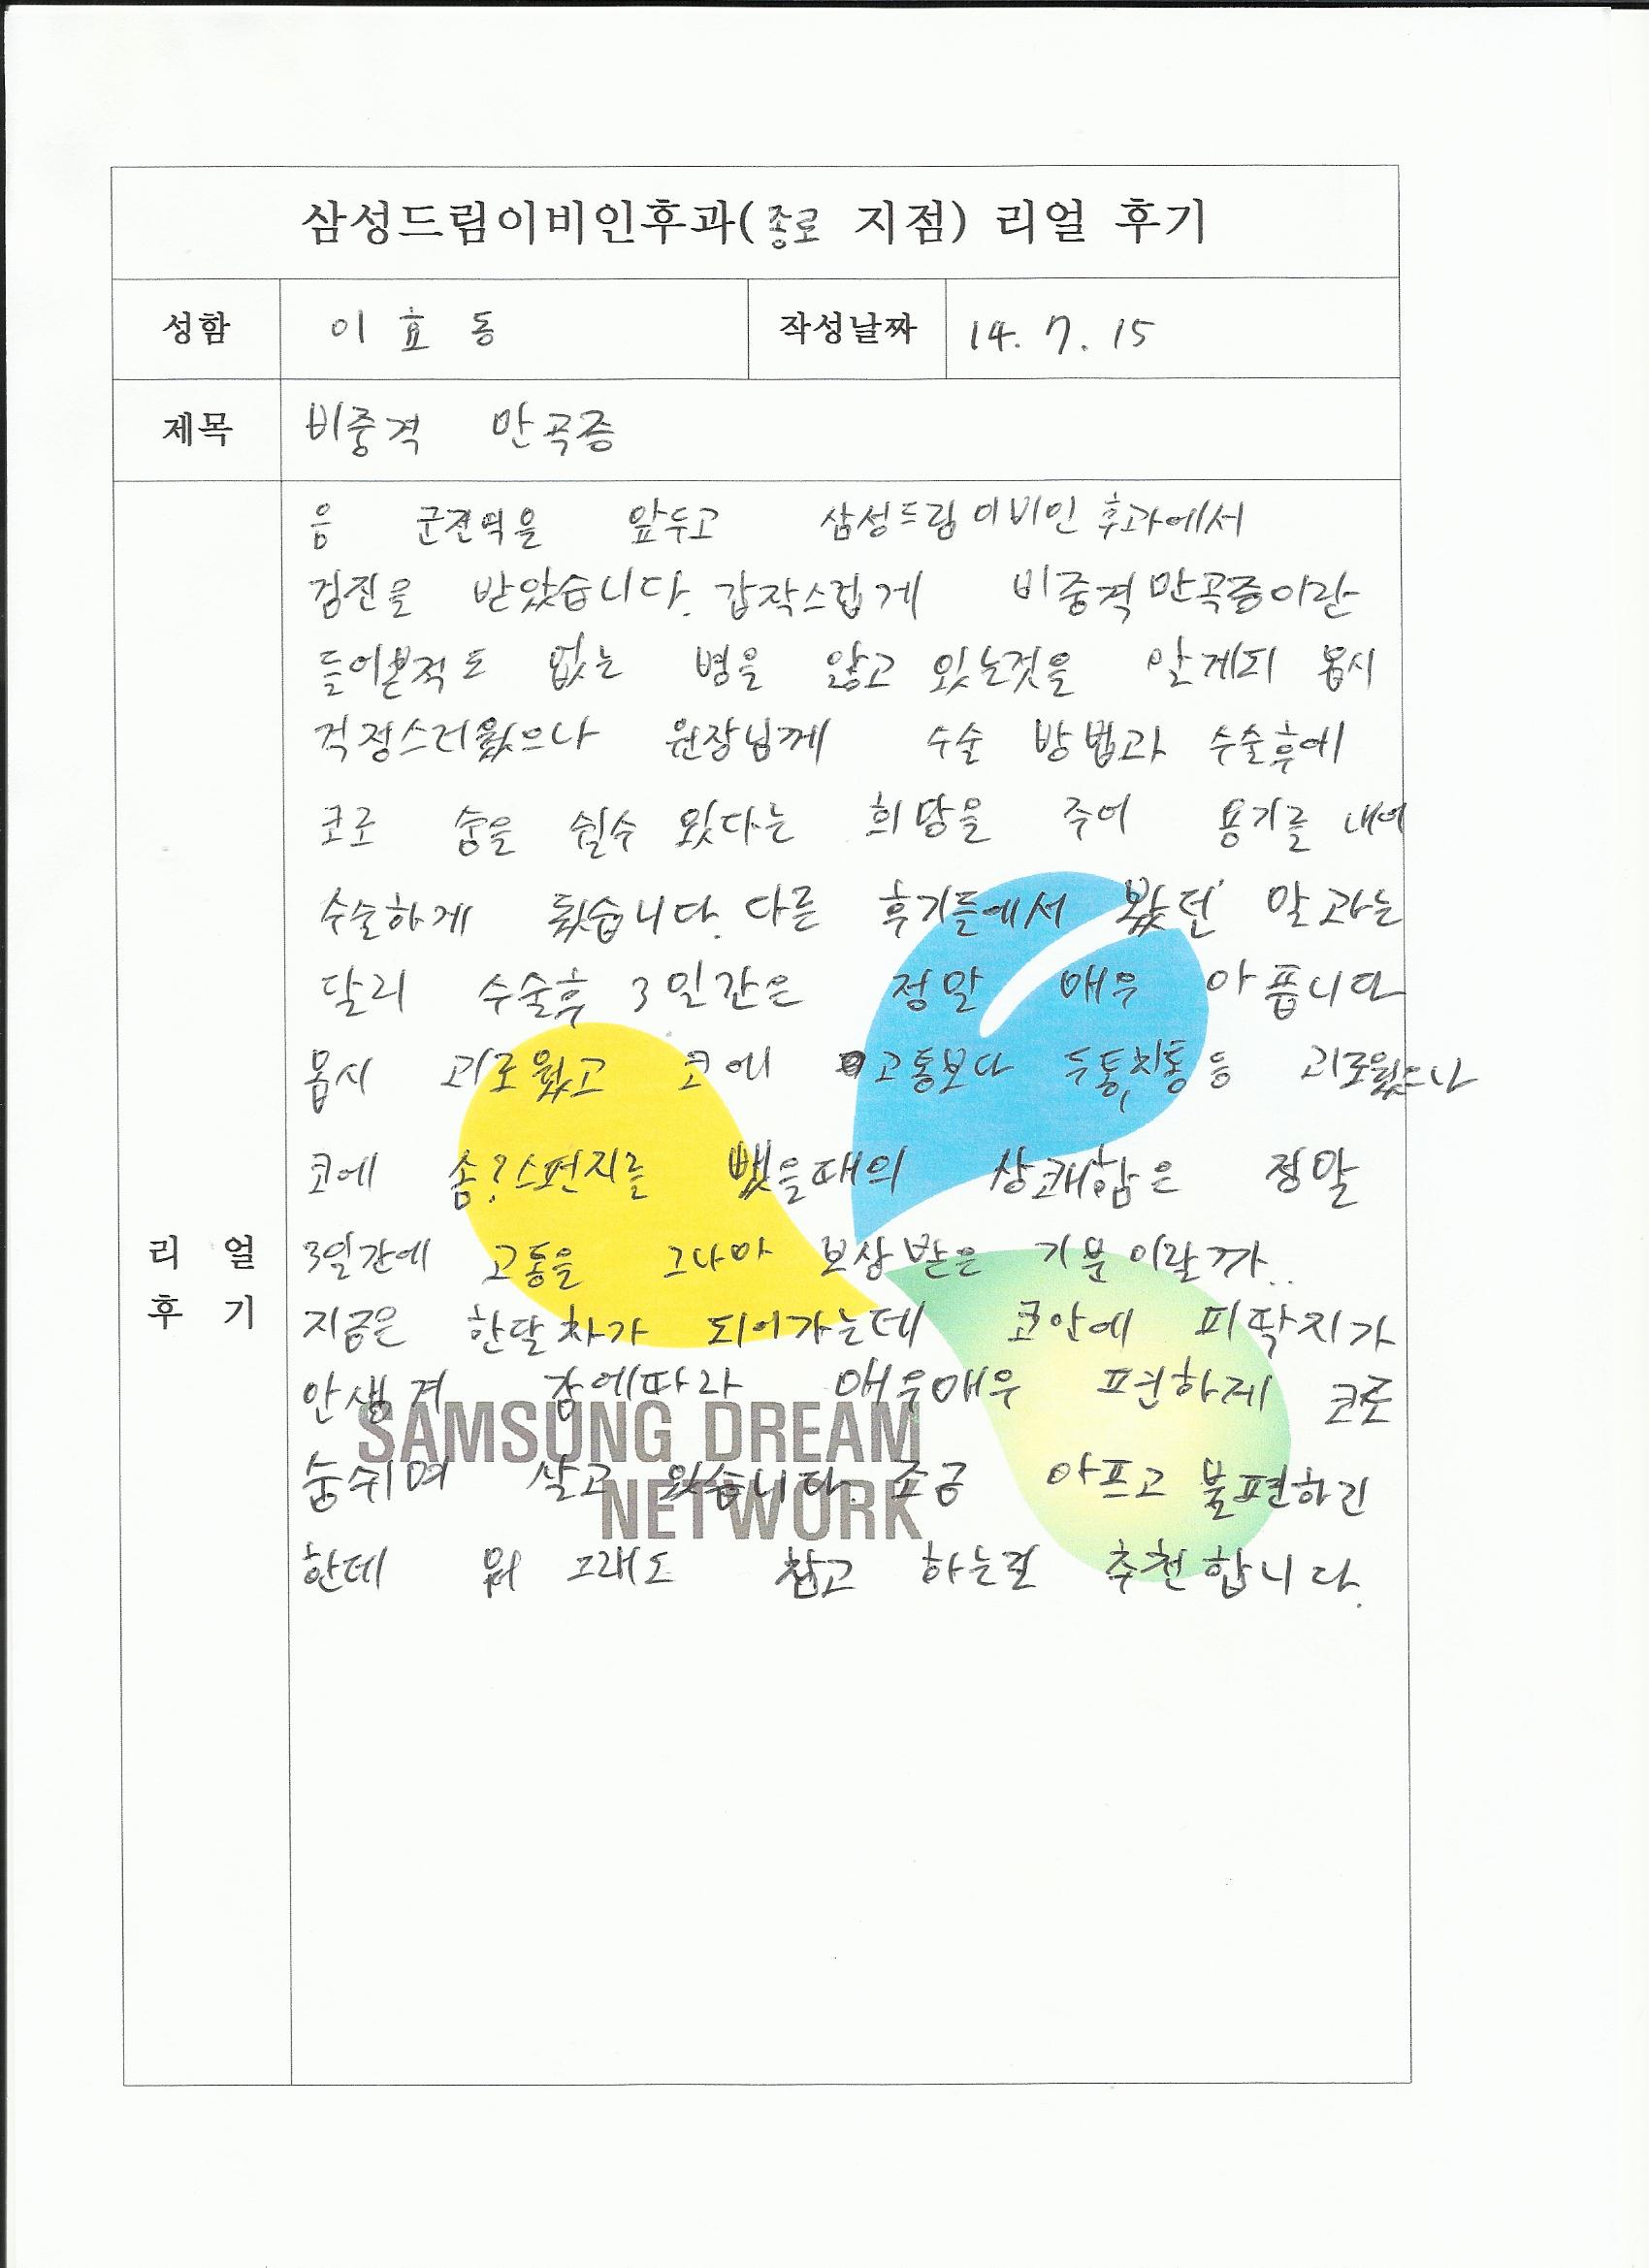 삼성드림이비인후과(종로 지점) 리얼 후기
성함 이효동 작성날짜 14. 7. 15
제목 비중격 만곡증
음 군전역을 앞두고 삼성드림이비인후과에서
검진을 받았습니다. 갑작스럽게 비중격만곡증이란
들어본적도 없는 병을 앓고 있는것을 알게되 몹시
걱정스러웠으나 원장님께 수술 방법과 수술후에
코로 숨을 쉴수 있다는 희망을 주어 용기를 내어
수술하게 됬습니다. 다른 후기들에서 봤던 말과는
달리 수술후 3일간은 정말 매우 아픕니다
몹시 괴로웠고 코에 고통보다 두통,치통등 괴로웠으나
코에 솜?스펀지를 뺐을때의 상쾌함은 정말
3일간에 고통을 그나마 보상받은 기분이랄까..
지금은 한달차가 되어가는데 코안에 피딱지가
안생겨 감에따라 매우매우 편하게 코로
숨쉬며 살고 있습니다. 조금 아프고 불편하긴
한데 뭐 그래도 참고 하는걸 추천합니다.
리 얼
후 기
SAMSUNG DREAM
NETWORK